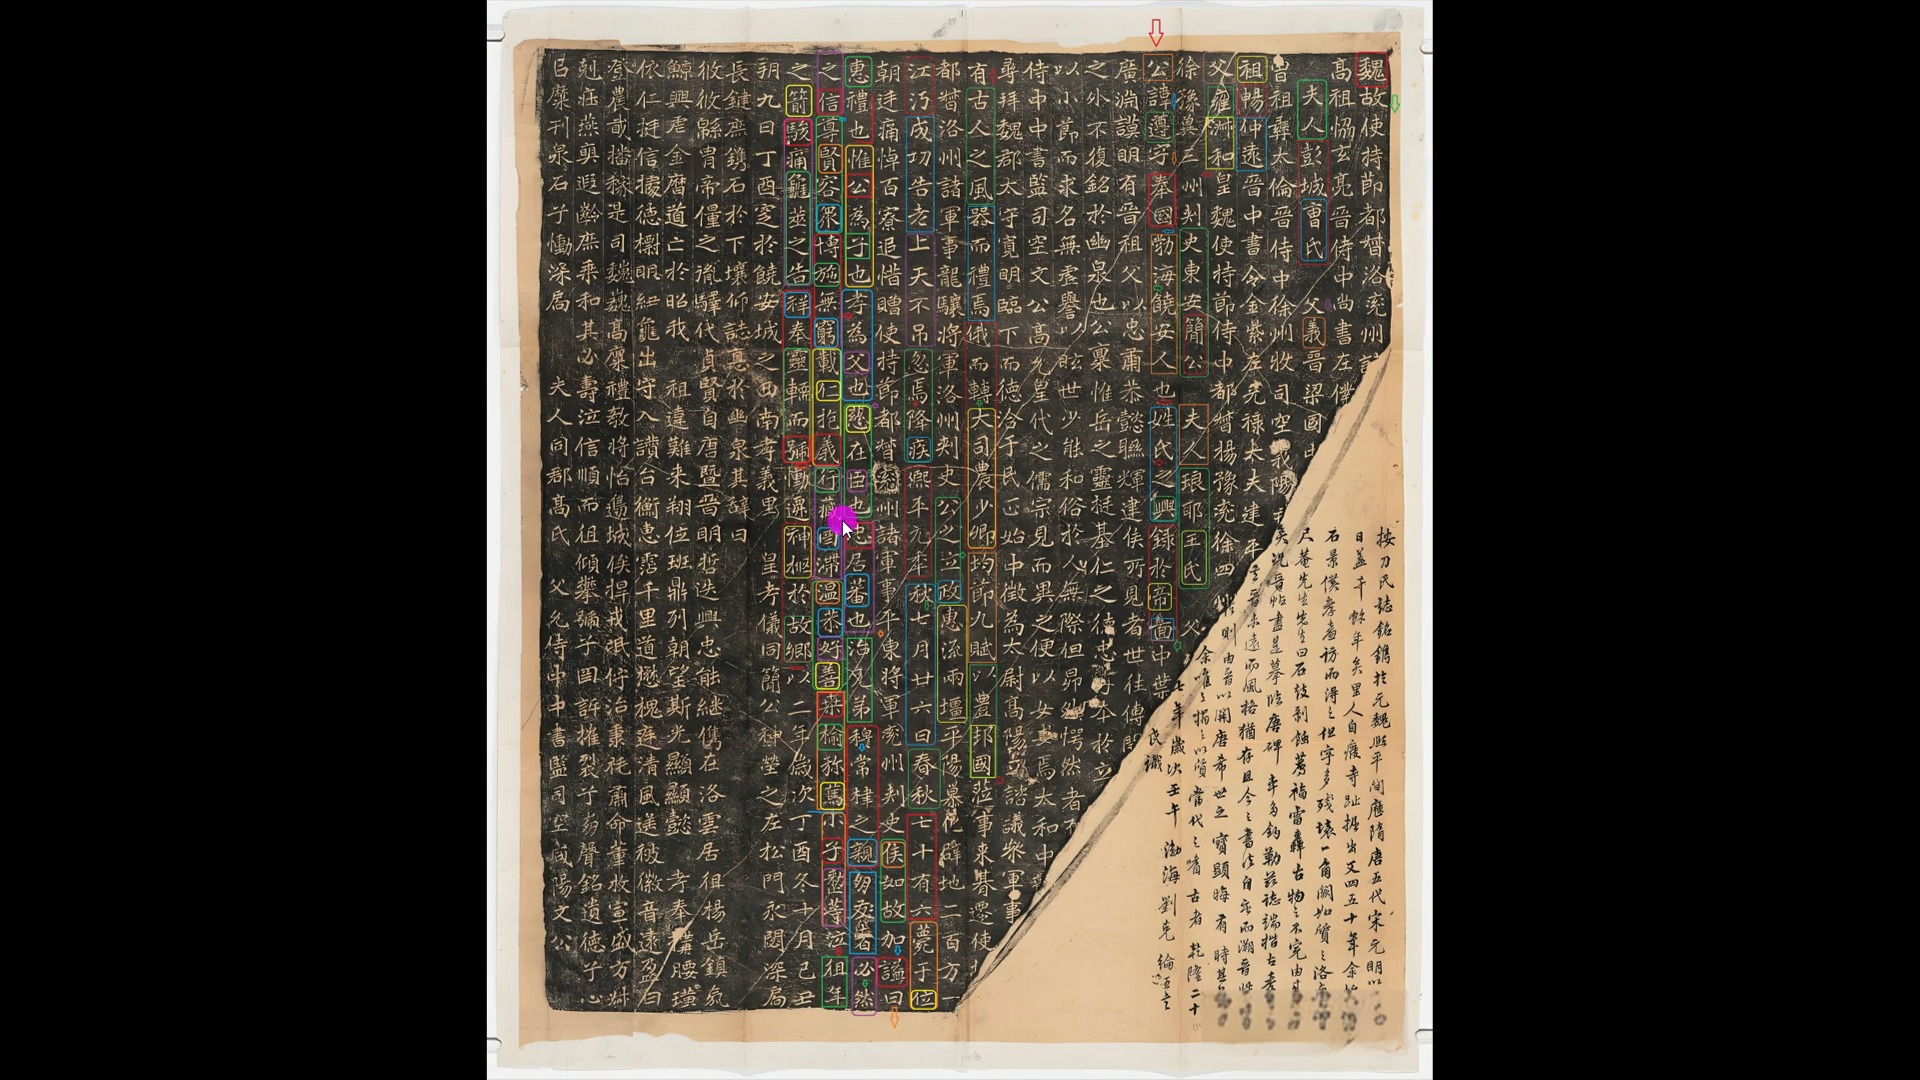 魏故使持節都督洛兗州諸
高祖協玄亮晉侍中尚書左僕
夫人彭城曹氏 父義晉梁國中
曾祖彝太倫晉侍中徐州牧司空義陽
祖暢仲遠晉中書令金紫左光祿大夫建平
父雍淑和皇魏使持節侍中都督揚豫兗徐四州
徐豫冀三州刺史東安簡公 夫人琅耶王氏 父
公諱遵字奉國勃海饒安人也姓氏之興錄於帝啚中葉
廣淵謨明有晉祖父以忠肅恭懿聯輝建侯所見者世徃傳聞
之外不復銘於幽泉也公稟惟岳之靈挺基仁之德忠孝本於立
以小節而求名無虛譽以眩世少能和俗於人無際但昂然愕然者
侍中中書監司空文公高允皇代之儒宗見而異之便以女妻焉太和中
尋拜魏郡太守寬明臨下而德洽于民正始中徵為太尉高陽王諮議參軍事
有古人之風器而禮焉俄而轉大司農少卿均節九賦以豊邦國莅事來朞遷使
都督洛州諸軍事龍驤將軍洛州刺史公之立政惠流兩壃平陽慕化辟地二百方一
江沔成功告老上天不弔忽焉降疾熙平元年秋七月廿六日春秋七十有六薨于位
朝廷痛悼百寮追惜贈使持節都督兗州諸軍事平東將軍兗州刺史侯如故加謚曰
惠禮也惟公為子也孝為父也慈在臣也忠居蕃也治兄弟穆常棣之親朋友著必然
之信導賢容眾博施無窮載仁抱義行藏罔滯溫恭好善桒榆弥篤小子整等泣徂年
之箭駿痛龜莁之告祥奉靈輀而號慟遷神柩於故鄉以二年歲次丁酉冬十月己丑
朔九日丁酉窆於饒安城之西南孝義里 皇考儀同簡公神塋之左松門永閟深扃
長鍵庶鐫石於下壤仰誌悳於幽泉其辭曰
攸攸緜胄帝僵之胤驛代貞賢自唐曁晉明哲迭興忠能継儁在洛雲居徂揚岳鎮氣
鯨興虐金曆道亡於昭我 祖違難來翔位班鼎列朝望斯光顯顯懿考奉腰璜
依仁挺信據德標明紐龜出守入讚台衡惠霑千里道懋槐庭清風遥秘徽音遠盈曰
登農畝播稼是司巍巍高廩禮教將怡邉城俟捍戎氓佇治稟秏肅命董牧宣威方對
剋疰燕奭遐齡庶乘和其必壽泣信順而徂傾攀號子囙訴摧裂子崩聲銘遺德子心
曰縻刊泉石子慟深扃 夫人同郡高氏 父允侍中中書監司空咸陽文公
按刀氏誌銘鐫於元魏熙平間歷隋唐五代宋元明以
日盖千餘年矣里人自廢寺趾掘出又四五十年余
石景僕孝廉訪而得之但字多殘壞一角闕如質之洛
尺菴先生先生曰石鼓剝蝕薦福雷轟古物之不完由
矣況晉帖盡是摹臨唐碑率多鈎勒茲誌端楷古
去晉未遠而風格猶存且今之書法自唐而溯晉
則由晉以開唐希世之寶顯晦有時
余唯之搨之以質當代之嗜古者 乾隆二十
七年歲次壬午 渤海劉克綸
氏識